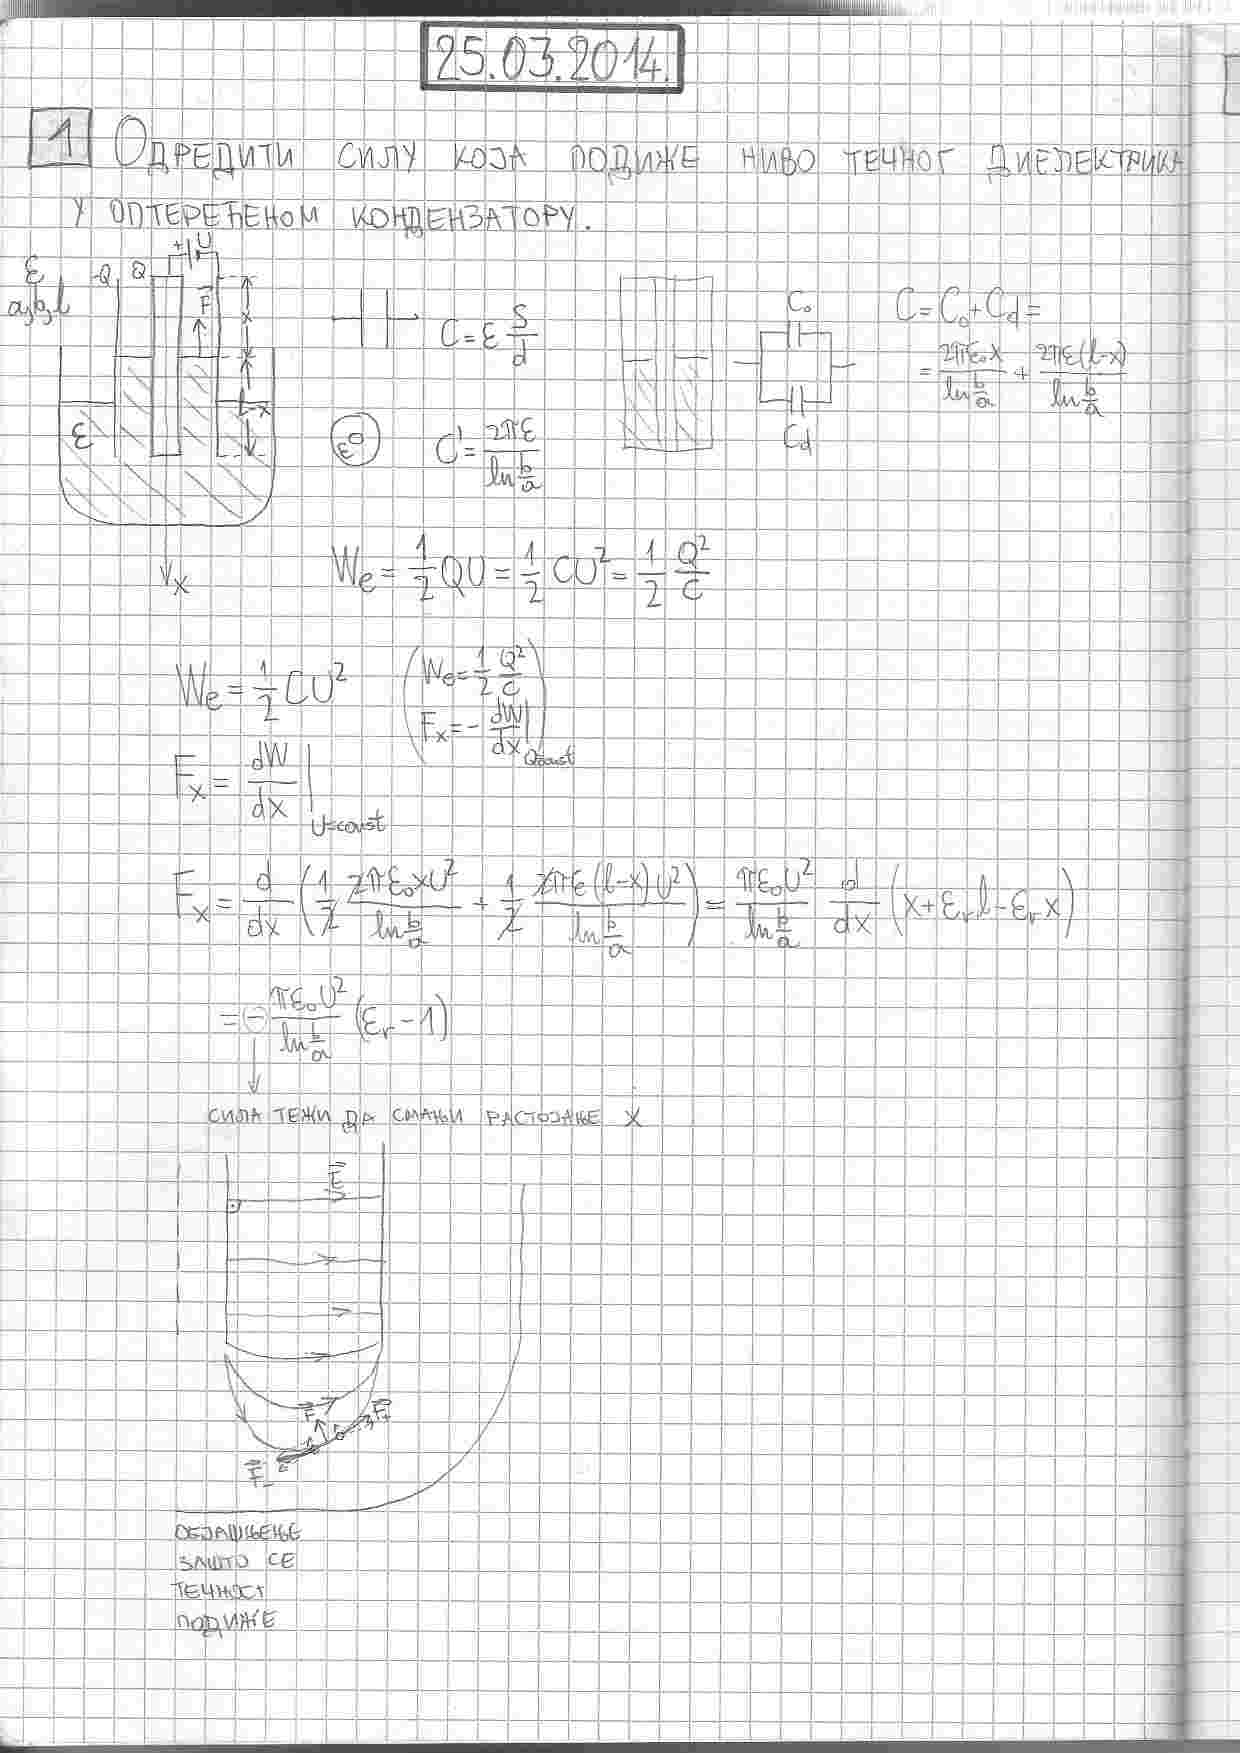 25.03.2014.
1 ОДРЕДИТИ СИЛУ КОЈА ПОДИЖЕ НИВО ТЕЧНОГ ДИЕЛЕКТРИКА
У ОПТЕРЕЋЕНОМ КОНДЕНЗАТОРУ.
+ U
ε -Q Q
a,b,l
F
x
l-x
ε
x
C=ε S/d
ε
C'= 2πε/ln b/a
C₀
Cd
C=C₀+Cd=
= 2πε₀x/ln b/a + 2πε(l-x)/ln b/a
We= 1/2 QU= 1/2 CU²= 1/2 Q²/C
We= 1/2 CU²
(We= 1/2 Q²/C
Fx=- dW/dx | Q=const)
Fx= dW/dx | U=const
Fx= d/dx (1/2 2πε₀xU²/ln b/a + 1/2 2πε(l-x)U²/ln b/a)= πε₀U²/ln b/a d/dx (x+εrl-εrx)
=- πε₀U²/ln b/a (εr-1)
СИЛА ТЕЖИ ДА СМАЊИ РАСТОЈАЊЕ X
E
F F+
F-
ОБЈАШЊЕЊЕ
ЗАШТО СЕ
ТЕЧНОСТ
ПОДИЖЕ